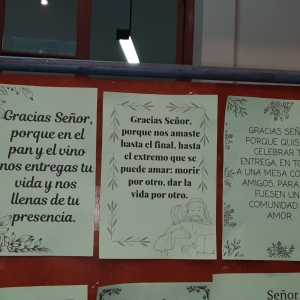 Gracias Señor,
porque en el
pan y el vino
nos entregas tu
vida y nos
llenas de tu
presencia.
Gracias Señor,
porque nos amaste
hasta el final, hasta
el extremo que se
puede amar: morir
por otro, dar la
vida por otro.
GRACIAS SEÑ
PORQUE QUIS
CELEBRAR T
ENTREGA, EN TO
A UNA MESA CO
AMIGOS, PARA
FUESEN UN
COMUNIDAD
AMOR
Señor